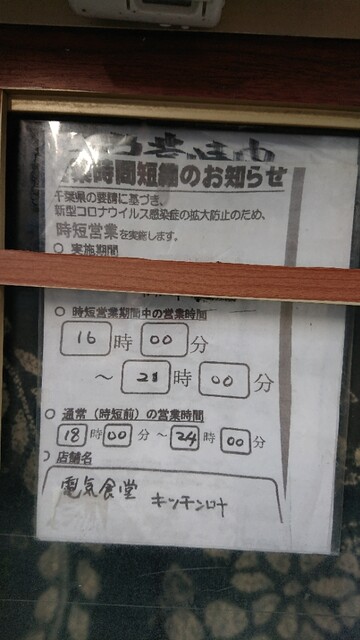 業時間短縮のお知らせ
千葉県の要請に基づき、
新型コロナウイルス感染症の拡大防止のため、
時短営業を実施します。
○ 実施期間
○ 時短営業期間中の営業時間
16 時 00 分
～ 21 時 00 分
○ 通常(時短前)の営業時間
18 時 00 分 ～ 24 時 00 分
店舗名
電気食堂 キッチン叶